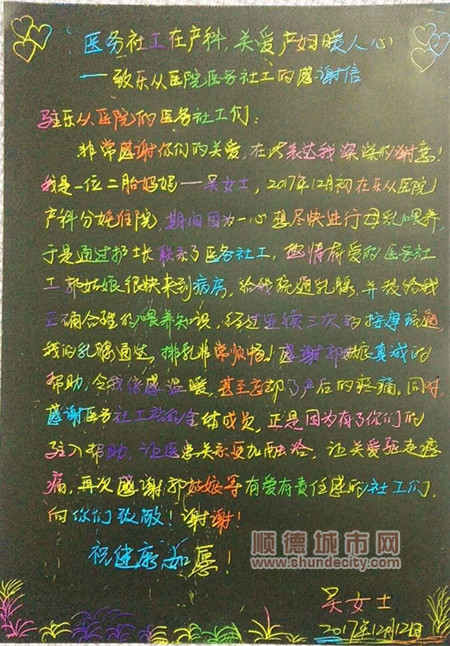 医务社工在产科,关爱产妇暖人心
——致乐从医院医务社工的感谢信
驻乐从医院的医务社工们:
非常感谢你们的关爱,在此表达我深深的谢意!
我是一位二胎妈妈——吴女士,2017年12月初在乐从医院
产科分娩住院,期间因为一心想尽快进行母乳喂养,
于是通过护士长联系了医务社工,热情有爱的医务社
工郭姑娘很快来到病房,给我疏通乳腺,并教给我
正确合理的喂养知识,经过连续三次的按摩疏通,
我的乳腺通过,排乳非常顺畅!感谢郭姑娘真诚的
帮助,令我倍感温暖,甚至忘却了产后的疼痛。同时,
感谢医务社工站的全体成员,正是因为有了你们的
驻入帮助,让医患关系更加融洽,让关爱驱走疼
痛,再次感谢郭姑娘等有爱有责任感的社工们,
向你们致敬!谢谢!
祝健康如愿!
吴女士
2017年12月12日
顺德城市网
www.shundecity.com